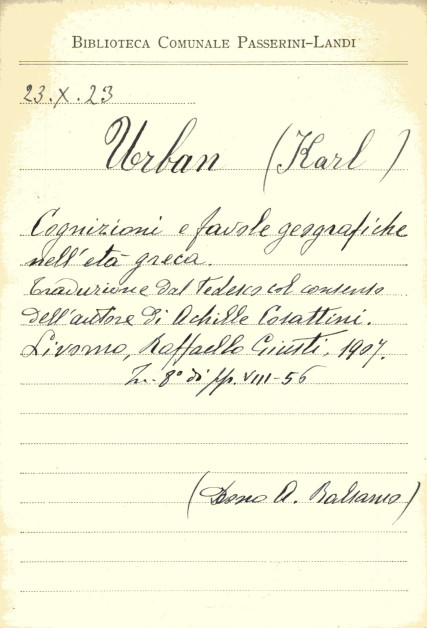 BIBLIOTECA COMUNALE PASSERINI-LANDI
23.X.23
Urban (Karl)
Cognizioni e favole geografiche
nell'età greca.
Traduzione dal tedesco col consenso
dell'autore di Achille Cosattini.
Livorno, Raffaello Giusti, 1907.
In-8° di pp. VIII-56
(Dono A. Balsamo)